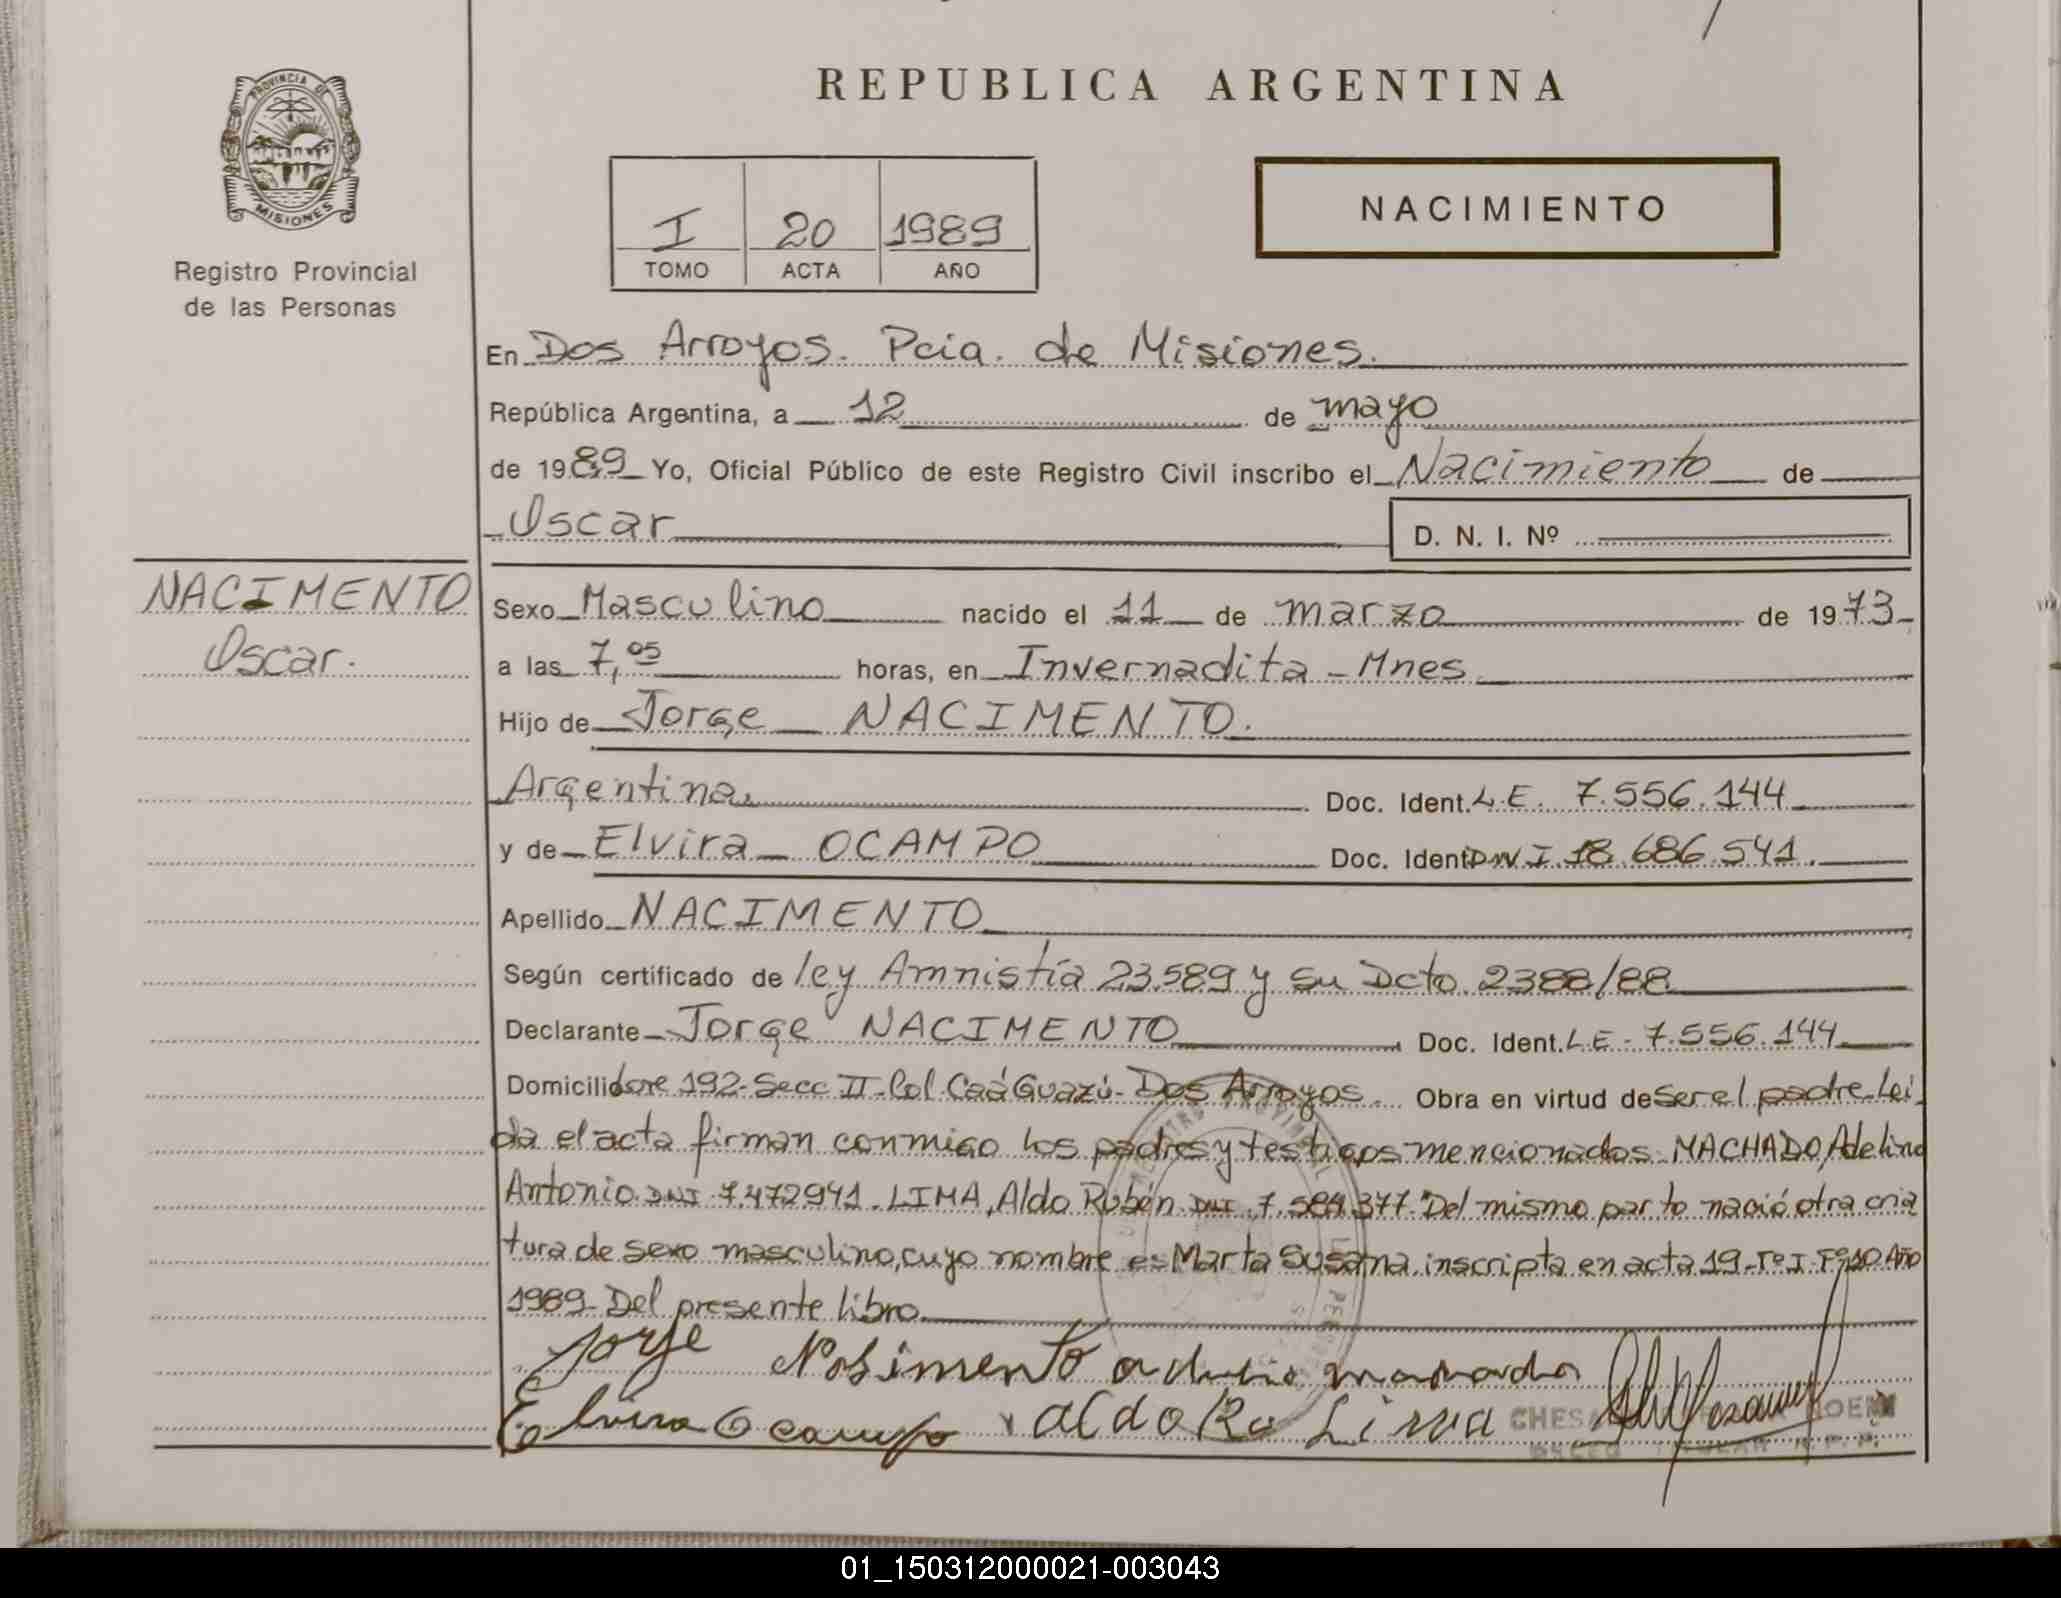 REPUBLICA ARGENTINA
PROVINCIA DE
MISIONES
Registro Provincial
de las Personas
I 20 1989
TOMO ACTA AÑO
NACIMIENTO
En Dos Arroyos. Pcia. de Misiones.
República Argentina, a 12 de mayo
de 1989 Yo, Oficial Público de este Registro Civil inscribo el Nacimiento de
Oscar D. N. I. Nº
NACIMENTO
Oscar.
Sexo Masculino nacido el 11 de marzo de 1973
a las 7,05 horas, en Invernadita - Mnes
Hijo de Jorge NACIMENTO.
Argentina Doc. Ident. L.E. 7.556.144
y de Elvira OCAMPO Doc. Ident DNI 18.686.541.
Apellido NACIMENTO
Según certificado de ley Amnistía 23.589 y su Dcto 2388/88
Declarante Jorge NACIMENTO Doc. Ident. L.E. 7.556.144
Domicilio Lote 192-Secc II-Col Caá Guazú- Dos Arroyos. Obra en virtud de ser el padre. Leí
da el acta firman conmigo los padres y testigos mencionados. MACHADO, Adelino
Antonio DNI 7.472941. LIMA, Aldo Rubén DNI 7.584.377. Del mismo parto nació otra cria
tura de sexo masculino, cuyo nombre es Marta Susana inscripta en acta 19-Tº I-Fº 10 Año
1989- Del presente libro.
Jorge Nosimento
Elvira Ocampo Aldo Ru Lima
01_150312000021-003043